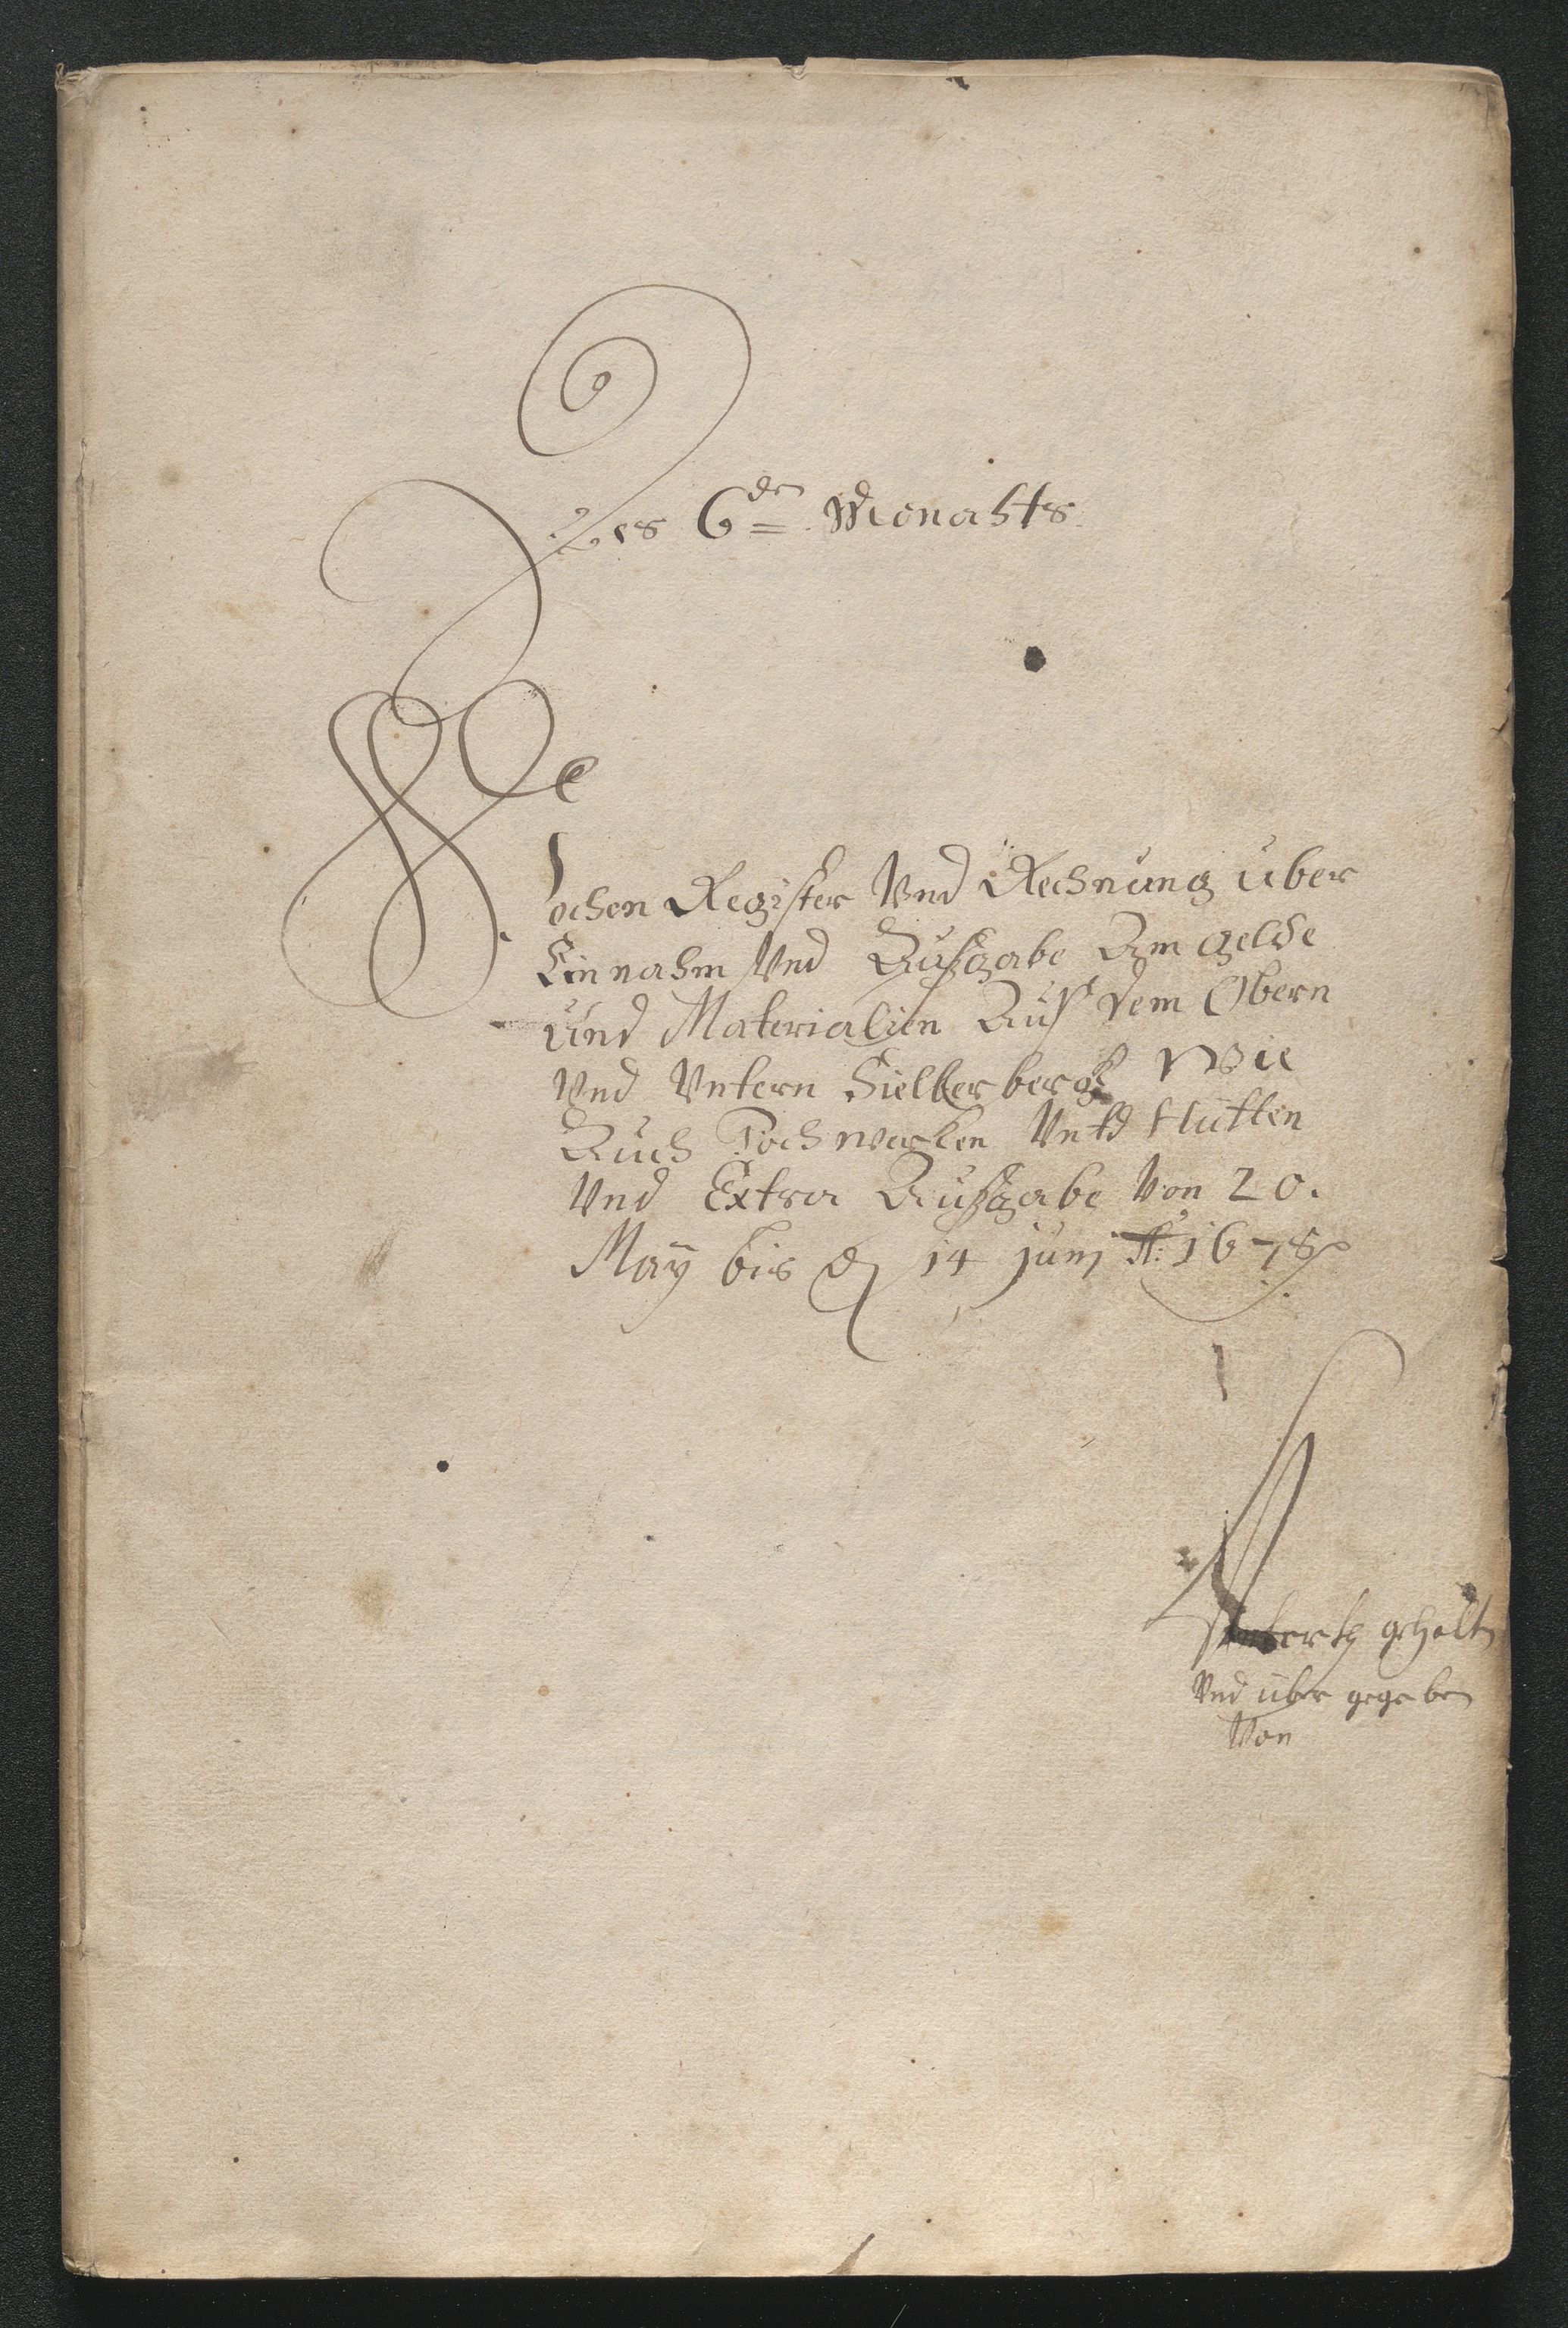 Des 6den Monahts
Wochen Register Vnd Rechnung über
Einnahm Vnd Außgabe Am gelde
und Materialien Auf dem Obern
Vnd Vntern Sielberbergk Wie
Auch Pochwerken Vntd Hütten
Vnd Extra Außgabe Von 20.
May bis d 14 Junj A: 1678
gehalten
Vnd über gegeben
Von